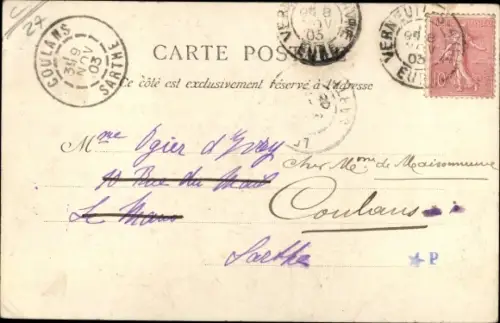 27
COULANS
9
NOV
03
SARTHE
VERNEUIL
8
NOV
03
EURE
VERNEUIL
8
NOV
03
EURE
10
CARTE POSTALE
Ce côté est exclusivement réservé à l'adresse
Mme Ogier d'Ivry
10 Rue du Mail
Le Mans
chez Mme de Maisonneuve
Coulans
Sarthe
P